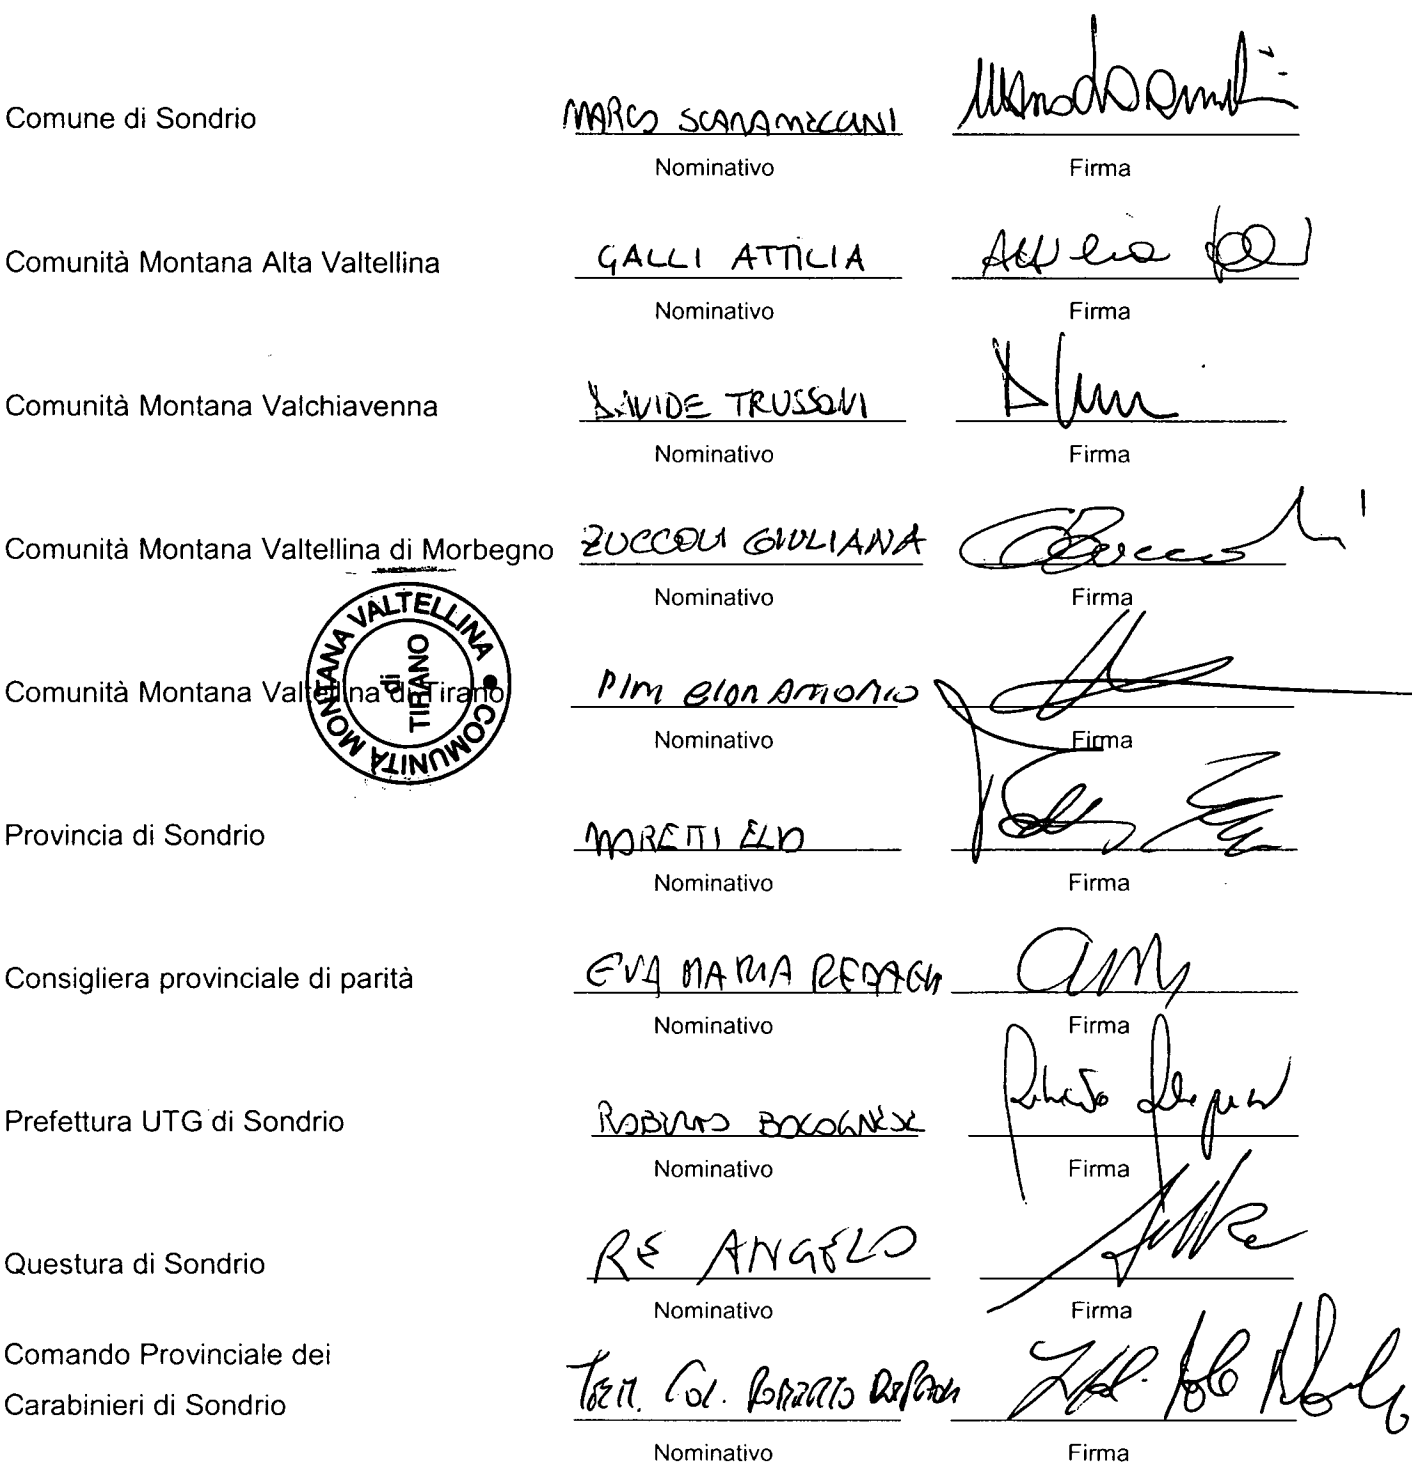 Comune di Sondrio MARCO SCARAMELLINI
Nominativo Firma
Comunità Montana Alta Valtellina GALLI ATTILIA Attilia Galli
Nominativo Firma
Comunità Montana Valchiavenna DAVIDE TRUSSONI
Nominativo Firma
Comunità Montana Valtellina di Morbegno ZUCCOLI GIULIANA
Nominativo Firma
COMUNITÀ MONTANA VALTELLINA
di
TIRANO
Comunità Montana Valtellina di Tirano PINI GIAN ANTONIO
Nominativo Firma
Provincia di Sondrio MORETTI ELIO
Nominativo Firma
Consigliera provinciale di parità EVA MARIA REDAELLI
Nominativo Firma
Prefettura UTG di Sondrio ROBERTO BOLOGNESE
Nominativo Firma
Questura di Sondrio RE ANGELO
Nominativo Firma
Comando Provinciale dei
Carabinieri di Sondrio TEN. COL. ROBERTO
Nominativo Firma